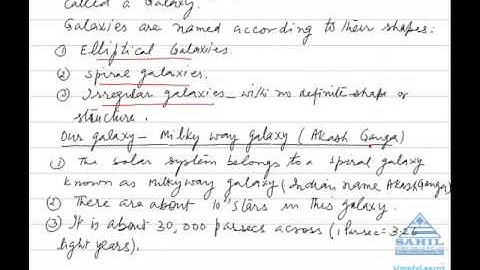 called a Galaxy.
Galaxies are named according to their shapes.
① Elliptical Galaxies.
② Spiral galaxies.
③ Irregular galaxies – with no definite shape or
structure.
Our galaxy – Milky way galaxy (Akash Ganga)
① The solar system belongs to a spiral galaxy
known as Milkyway galaxy (Indian name AkashGanga)
② There are about 10¹¹ stars in this galaxy.
③ It is about 30,000 parsecs across (1 Parsec = 3.26
light years).
SAHIL